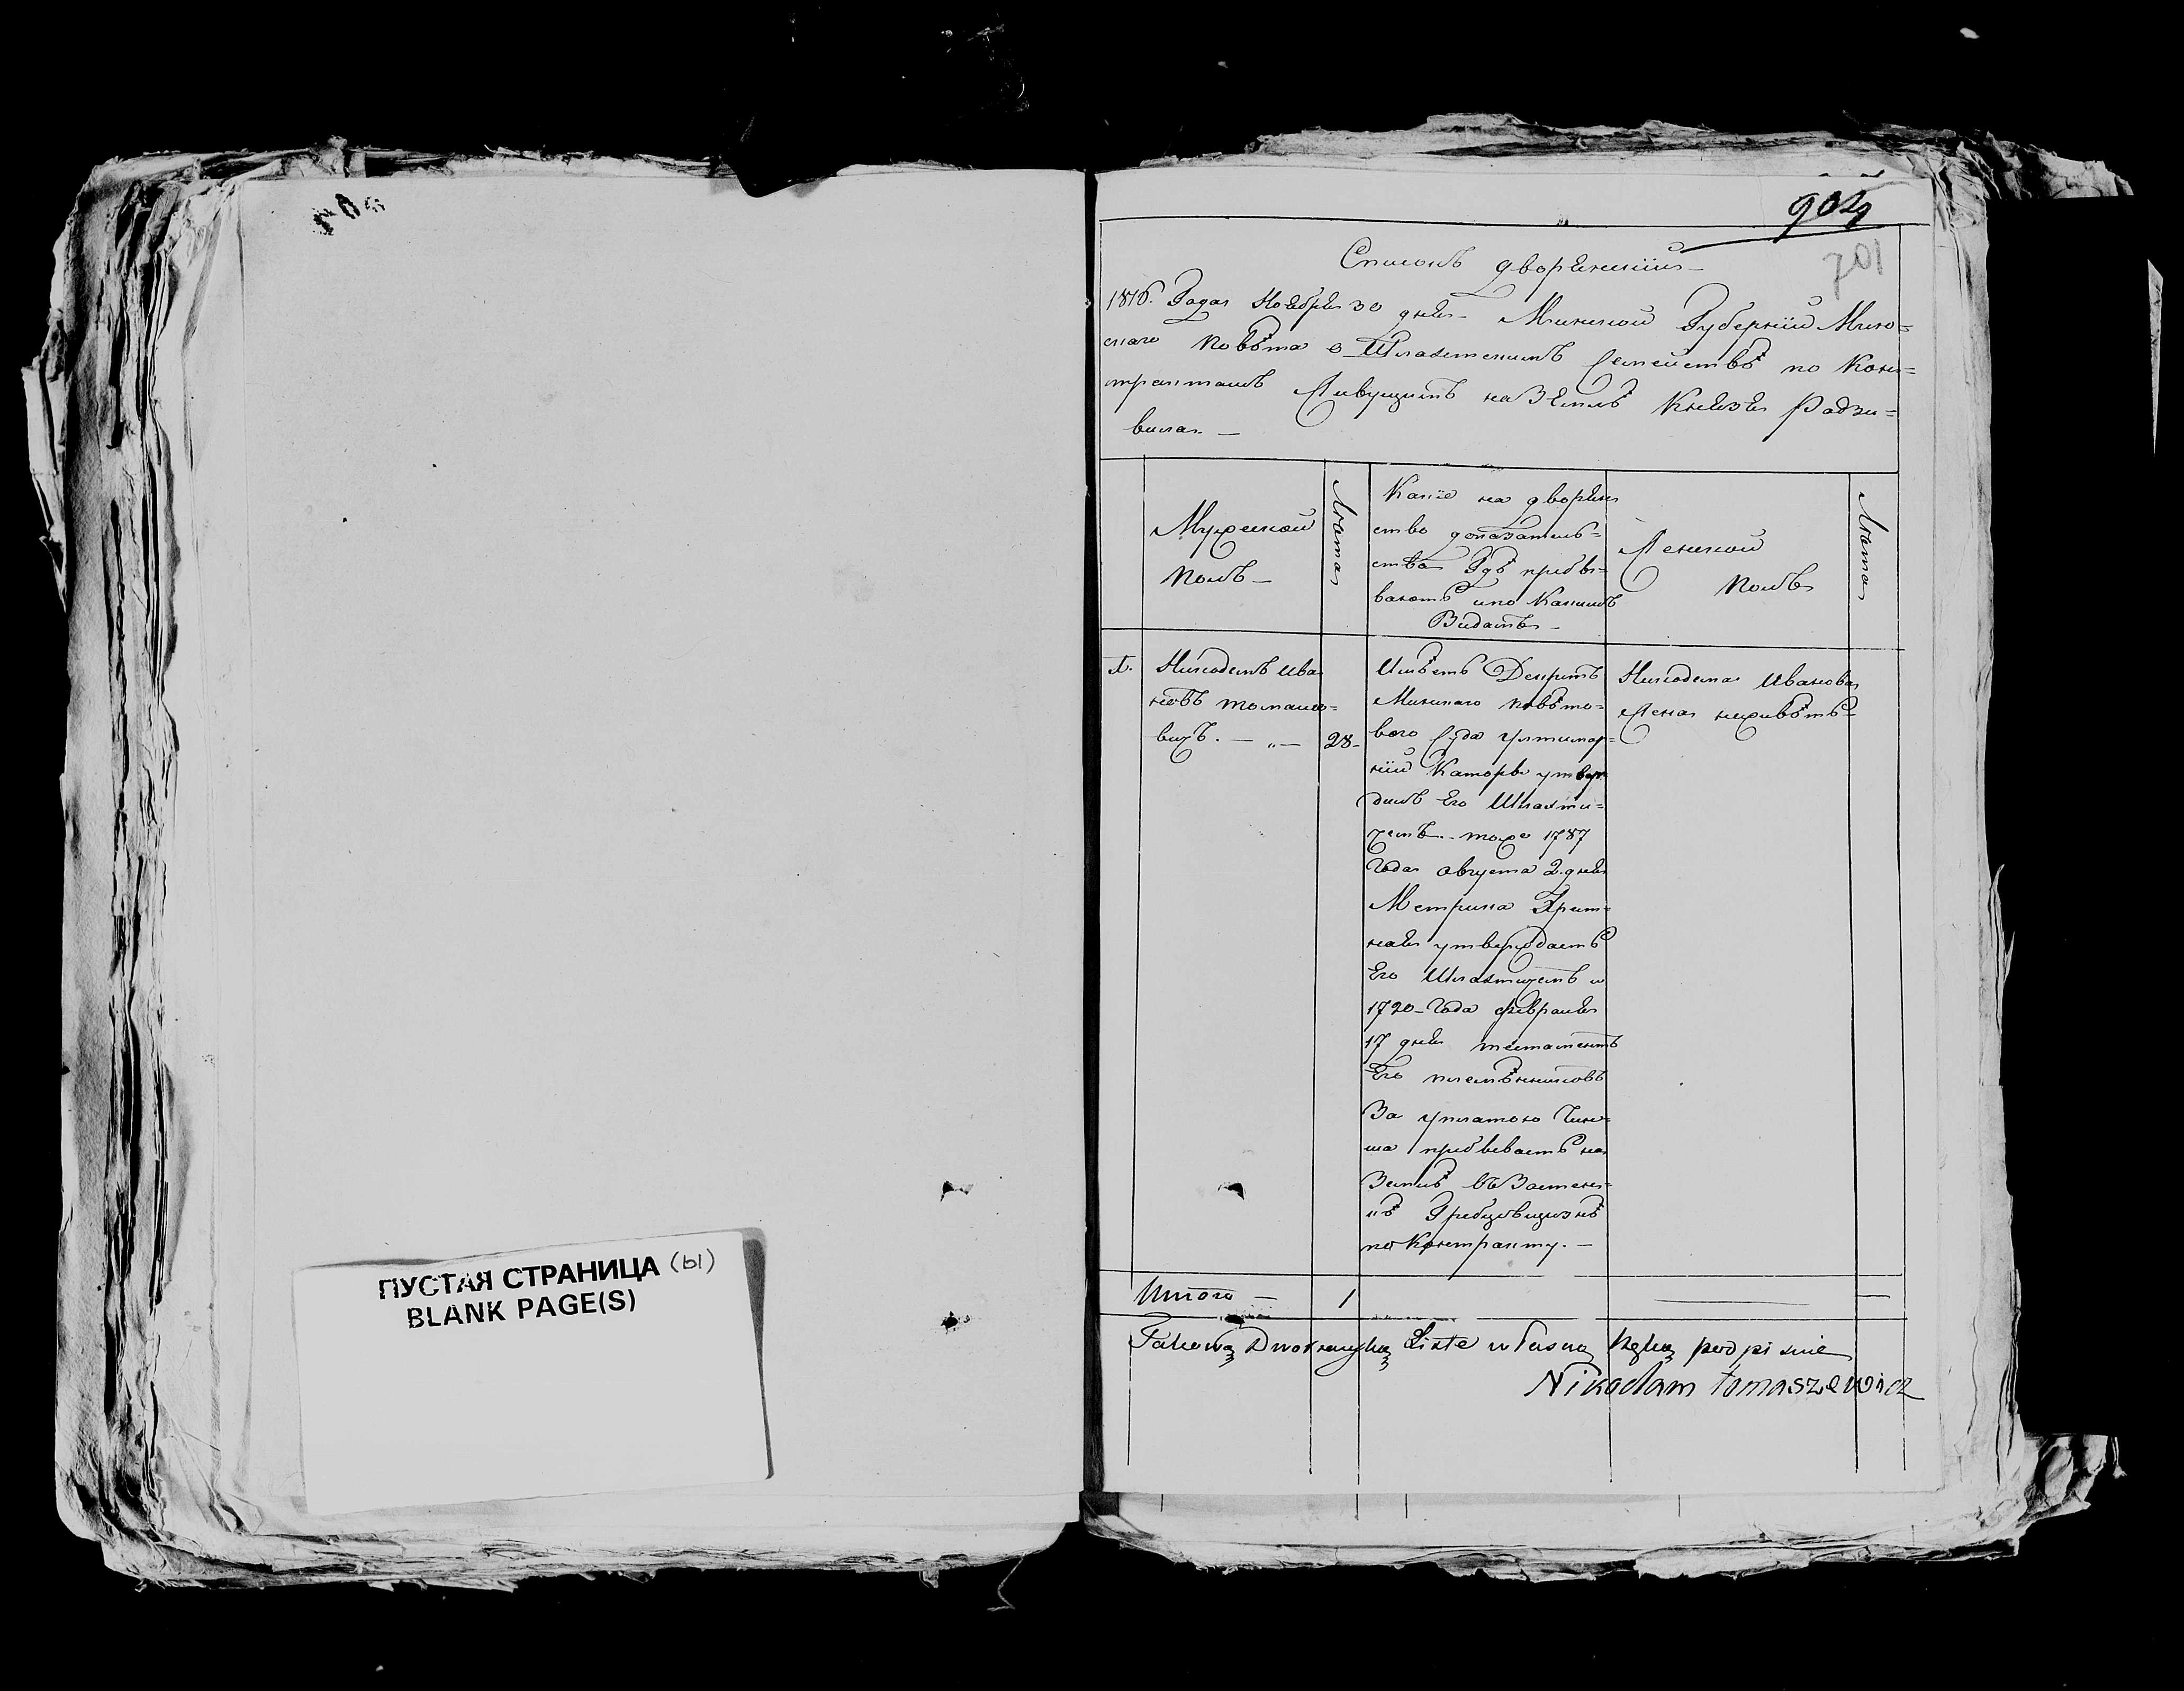 904
701
Списокъ дворянскiй
1816. Года Ноября 30 дня Минской Губернiи Минс=
скаго Повѣта о Шляхетскимъ Семействѣ по Кон=
трактамъ Живущимъ на Землѣ Князя Радзи=
вила. —
Мужеской
Полъ —
Лѣта
Какiе на дворян
ство доказатель=
ства Гдѣ пребы=
ваютъ и по Какимъ
Видамъ —
Женской
Полъ
Лѣта
1.
Никодемъ Ива
новъ томаше=
вичъ. — „ — 28 —
Имѣетъ Декрить
Минскаго повѣто=
вого Суда
Каторы утвер
дилъ Его Шляхти=
чемъ тоже 1787
Года августа 2 дня
Метрика
утверждаетъ
Его Шляхтичемъ и
1720 Года февраля
17 дня тестаментъ
Его племѣнниковъ
За уплатою Чин=
ша пребываетъ на
Землѣ въ Застен=
кѣ
по Контракту. —
Никодема Иванова
Жена неживѣтъ
Итого — 1
Takową Dworanską Liste własną Ręką podpisuie
Nikodam tomaszewicz
ПУСТАЯ СТРАНИЦА (ы)
BLANK PAGE(S)